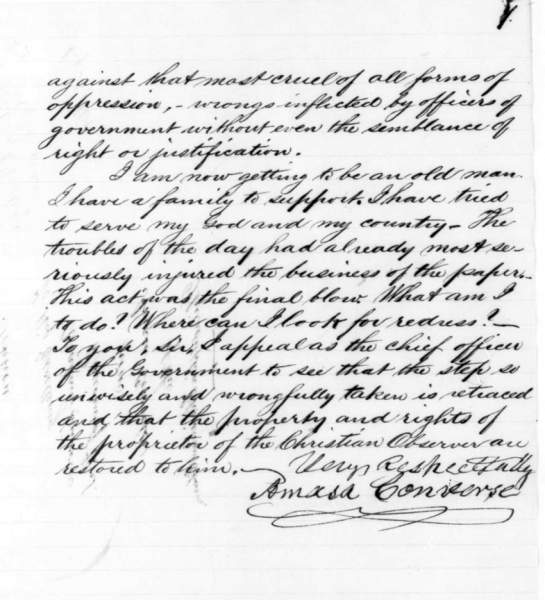 against that most cruel of all forms of
oppression, - wrongs inflicted by officers of
government without even the semblance of
right or justification.
I am now getting to be an old man.
I have a family to support. I have tried
to serve my God and my country - The
troubles of the day had already most se-
riously injured the business of the paper. -
This act was the final blow. What am I
to do? Where can I look for redress? -
To you, Sir, I appeal as the chief officer
of the Government to see that the step so
unwisely and wrongfully taken is retraced
and that the property and rights of
the proprietor of the Christian Observer are
restored to him. - Very Respectfully
Amasa Converse